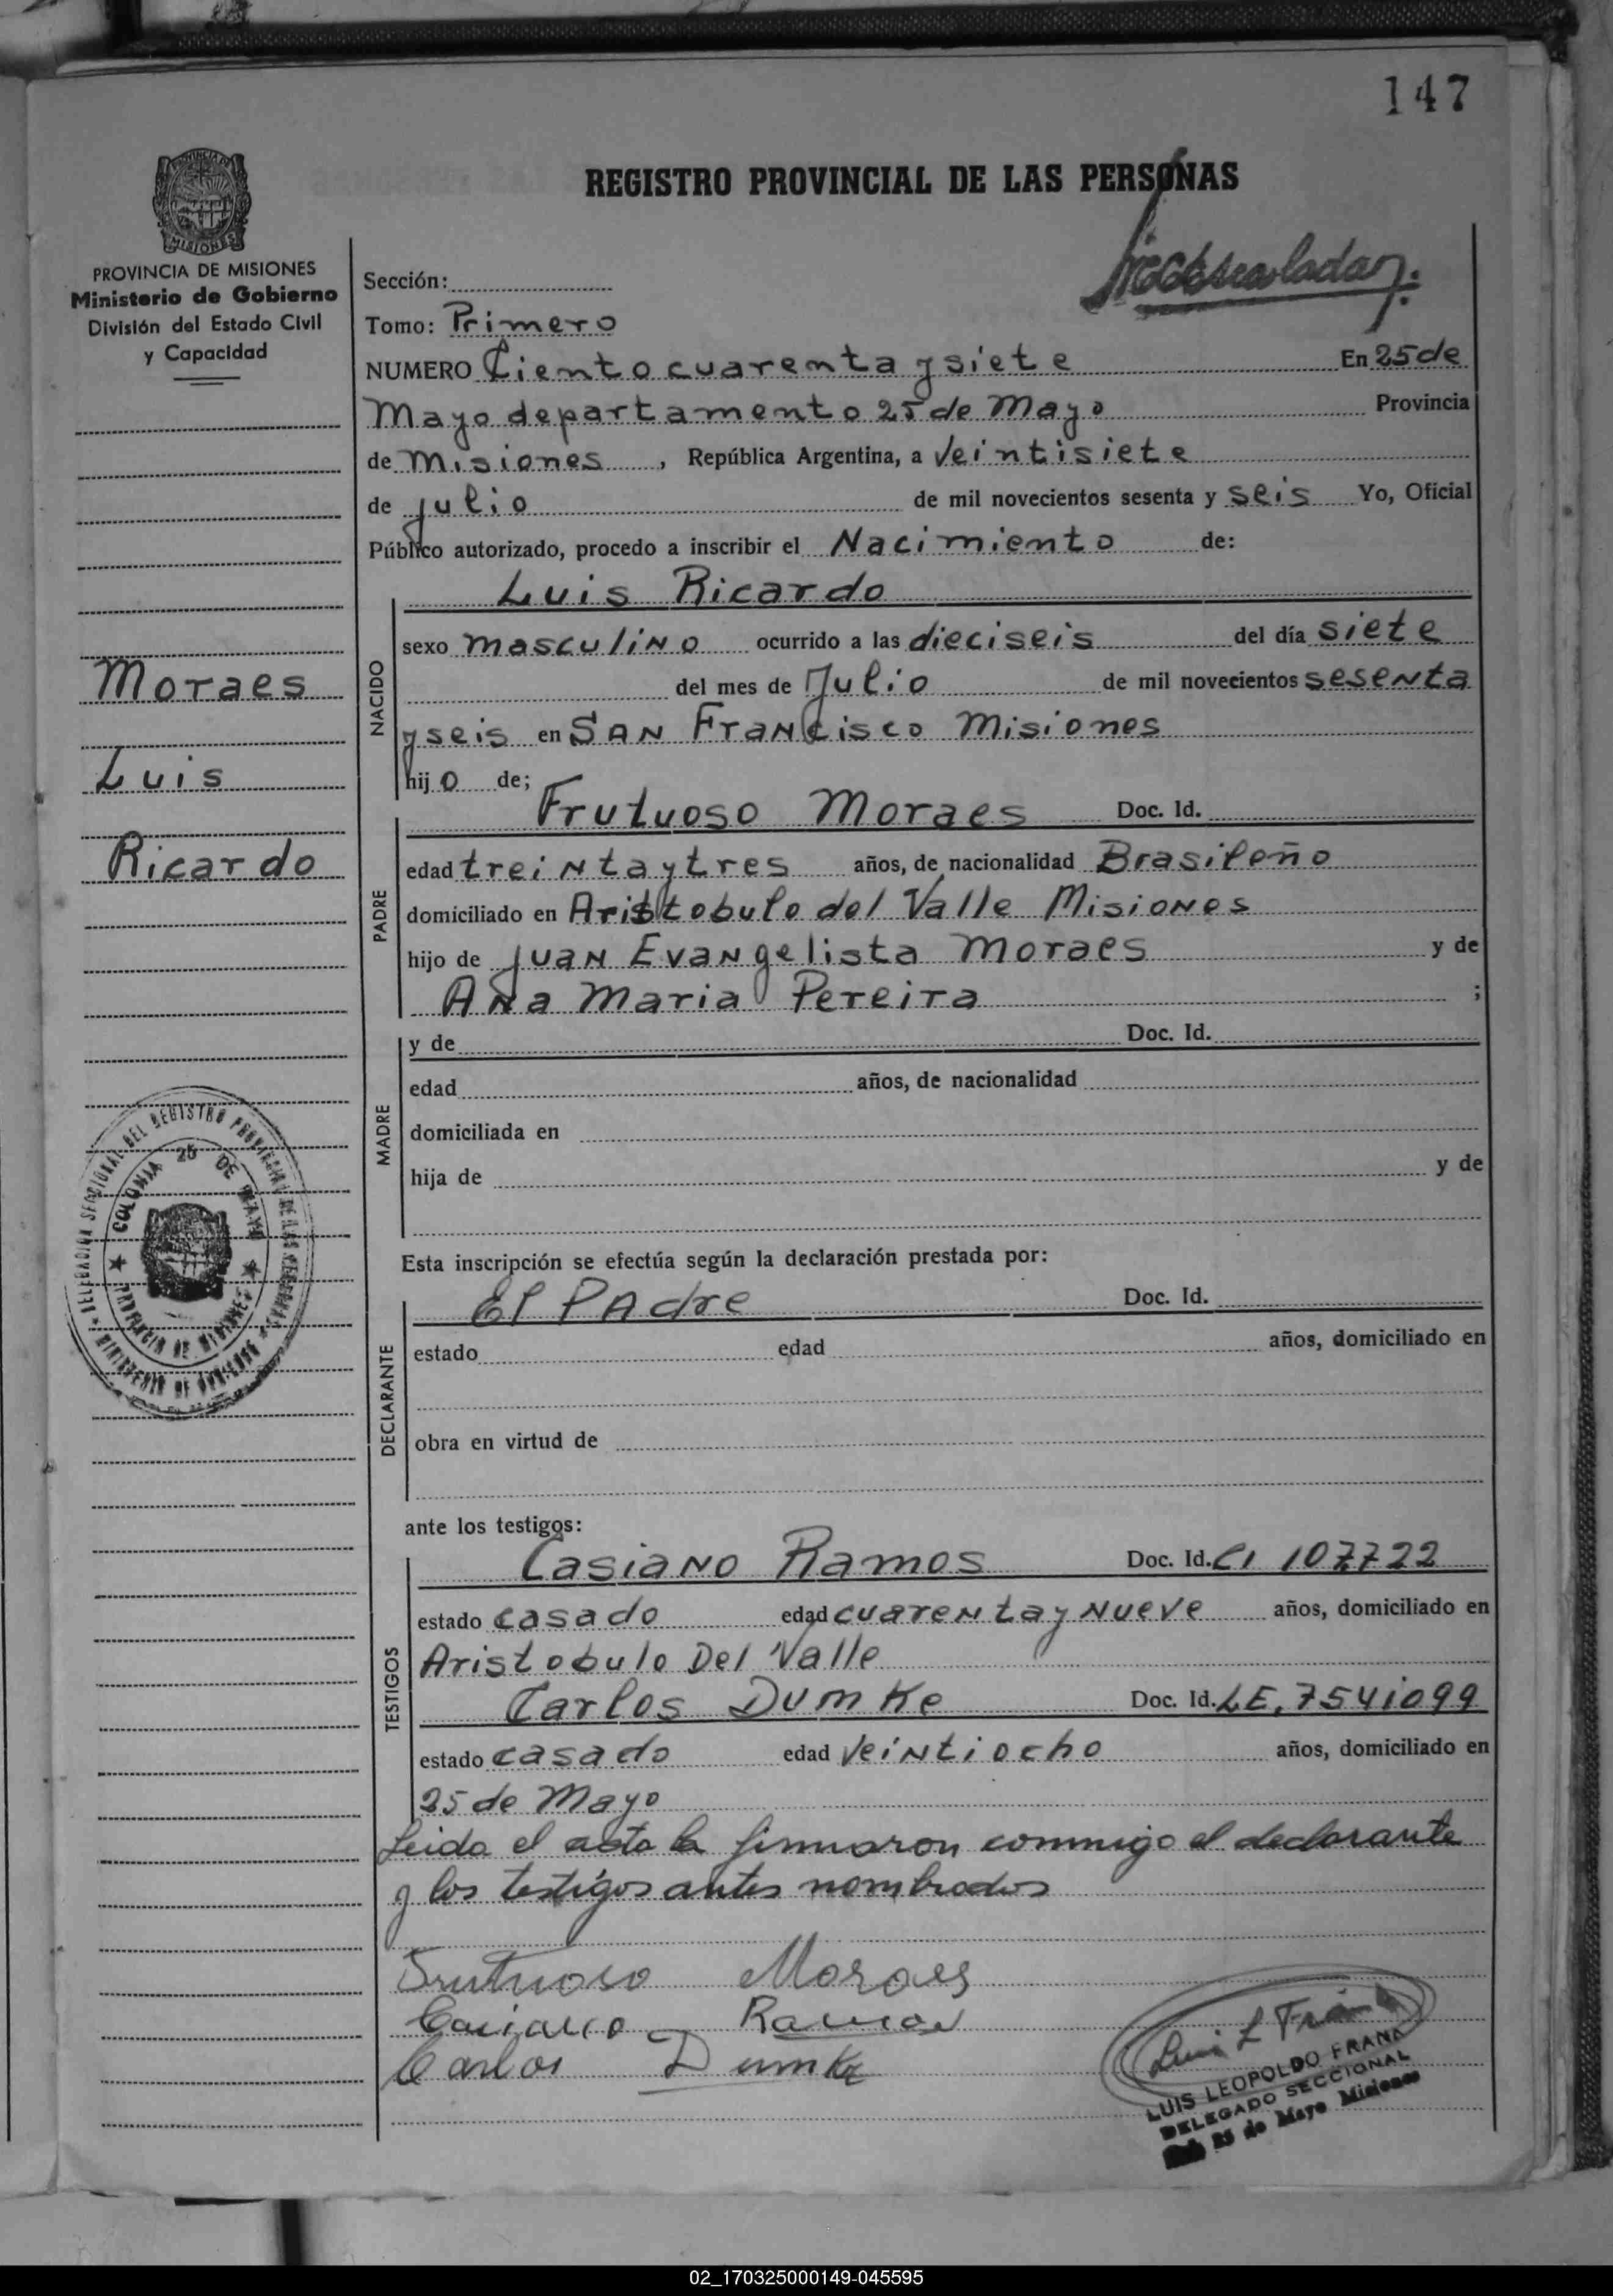 147
REGISTRO PROVINCIAL DE LAS PERSONAS
PROVINCIA DE MISIONES
Ministerio de Gobierno
División del Estado Civil
y Capacidad
Sección:
Tomo: Primero
NUMERO Ciento cuarenta y siete En 25 de
Mayo departamento 25 de Mayo Provincia
de Misiones, República Argentina, a veintisiete
de julio de mil novecientos sesenta y seis Yo, Oficial
Público autorizado, procedo a inscribir el Nacimiento de:
Moraes
Luis
Ricardo
NACIDO
Luis Ricardo
sexo masculino ocurrido a las dieciseis del día siete
del mes de Julio de mil novecientos sesenta
y seis en San Francisco Misiones
hijo de;
PADRE
Frutuoso Moraes Doc. Id.
edad treinta y tres años, de nacionalidad Brasileño
domiciliado en Aristobulo del Valle Misiones
hijo de Juan Evangelista Moraes y de
Ana Maria Pereira ;
MADRE
y de Doc. Id.
edad años, de nacionalidad
domiciliada en
hija de y de
DELEGACION SECCIONAL DEL REGISTRO PROVINCIAL DE LAS PERSONAS
MINISTERIO DE GOBIERNO
COLONIA 25 DE MAYO
PROVINCIA DE MISIONES
Esta inscripción se efectúa según la declaración prestada por:
DECLARANTE
El Padre Doc. Id.
estado edad años, domiciliado en
obra en virtud de
ante los testigos:
TESTIGOS
Casiano Ramos Doc. Id. CI 107722
estado casado edad cuarenta y nueve años, domiciliado en
Aristobulo Del Valle
Carlos Dumke Doc. Id. LE. 7541099
estado casado edad veintiocho años, domiciliado en
25 de Mayo
Leida el acta la firmaron conmigo el declarante
y los testigos antes nombrados
Frutuoso Moraes
Casiano Ramos
Carlos Dumke
Luis L Frana
LUIS LEOPOLDO FRANA
DELEGADO SECCIONAL
25 de Mayo Misiones
02_170325000149-045595